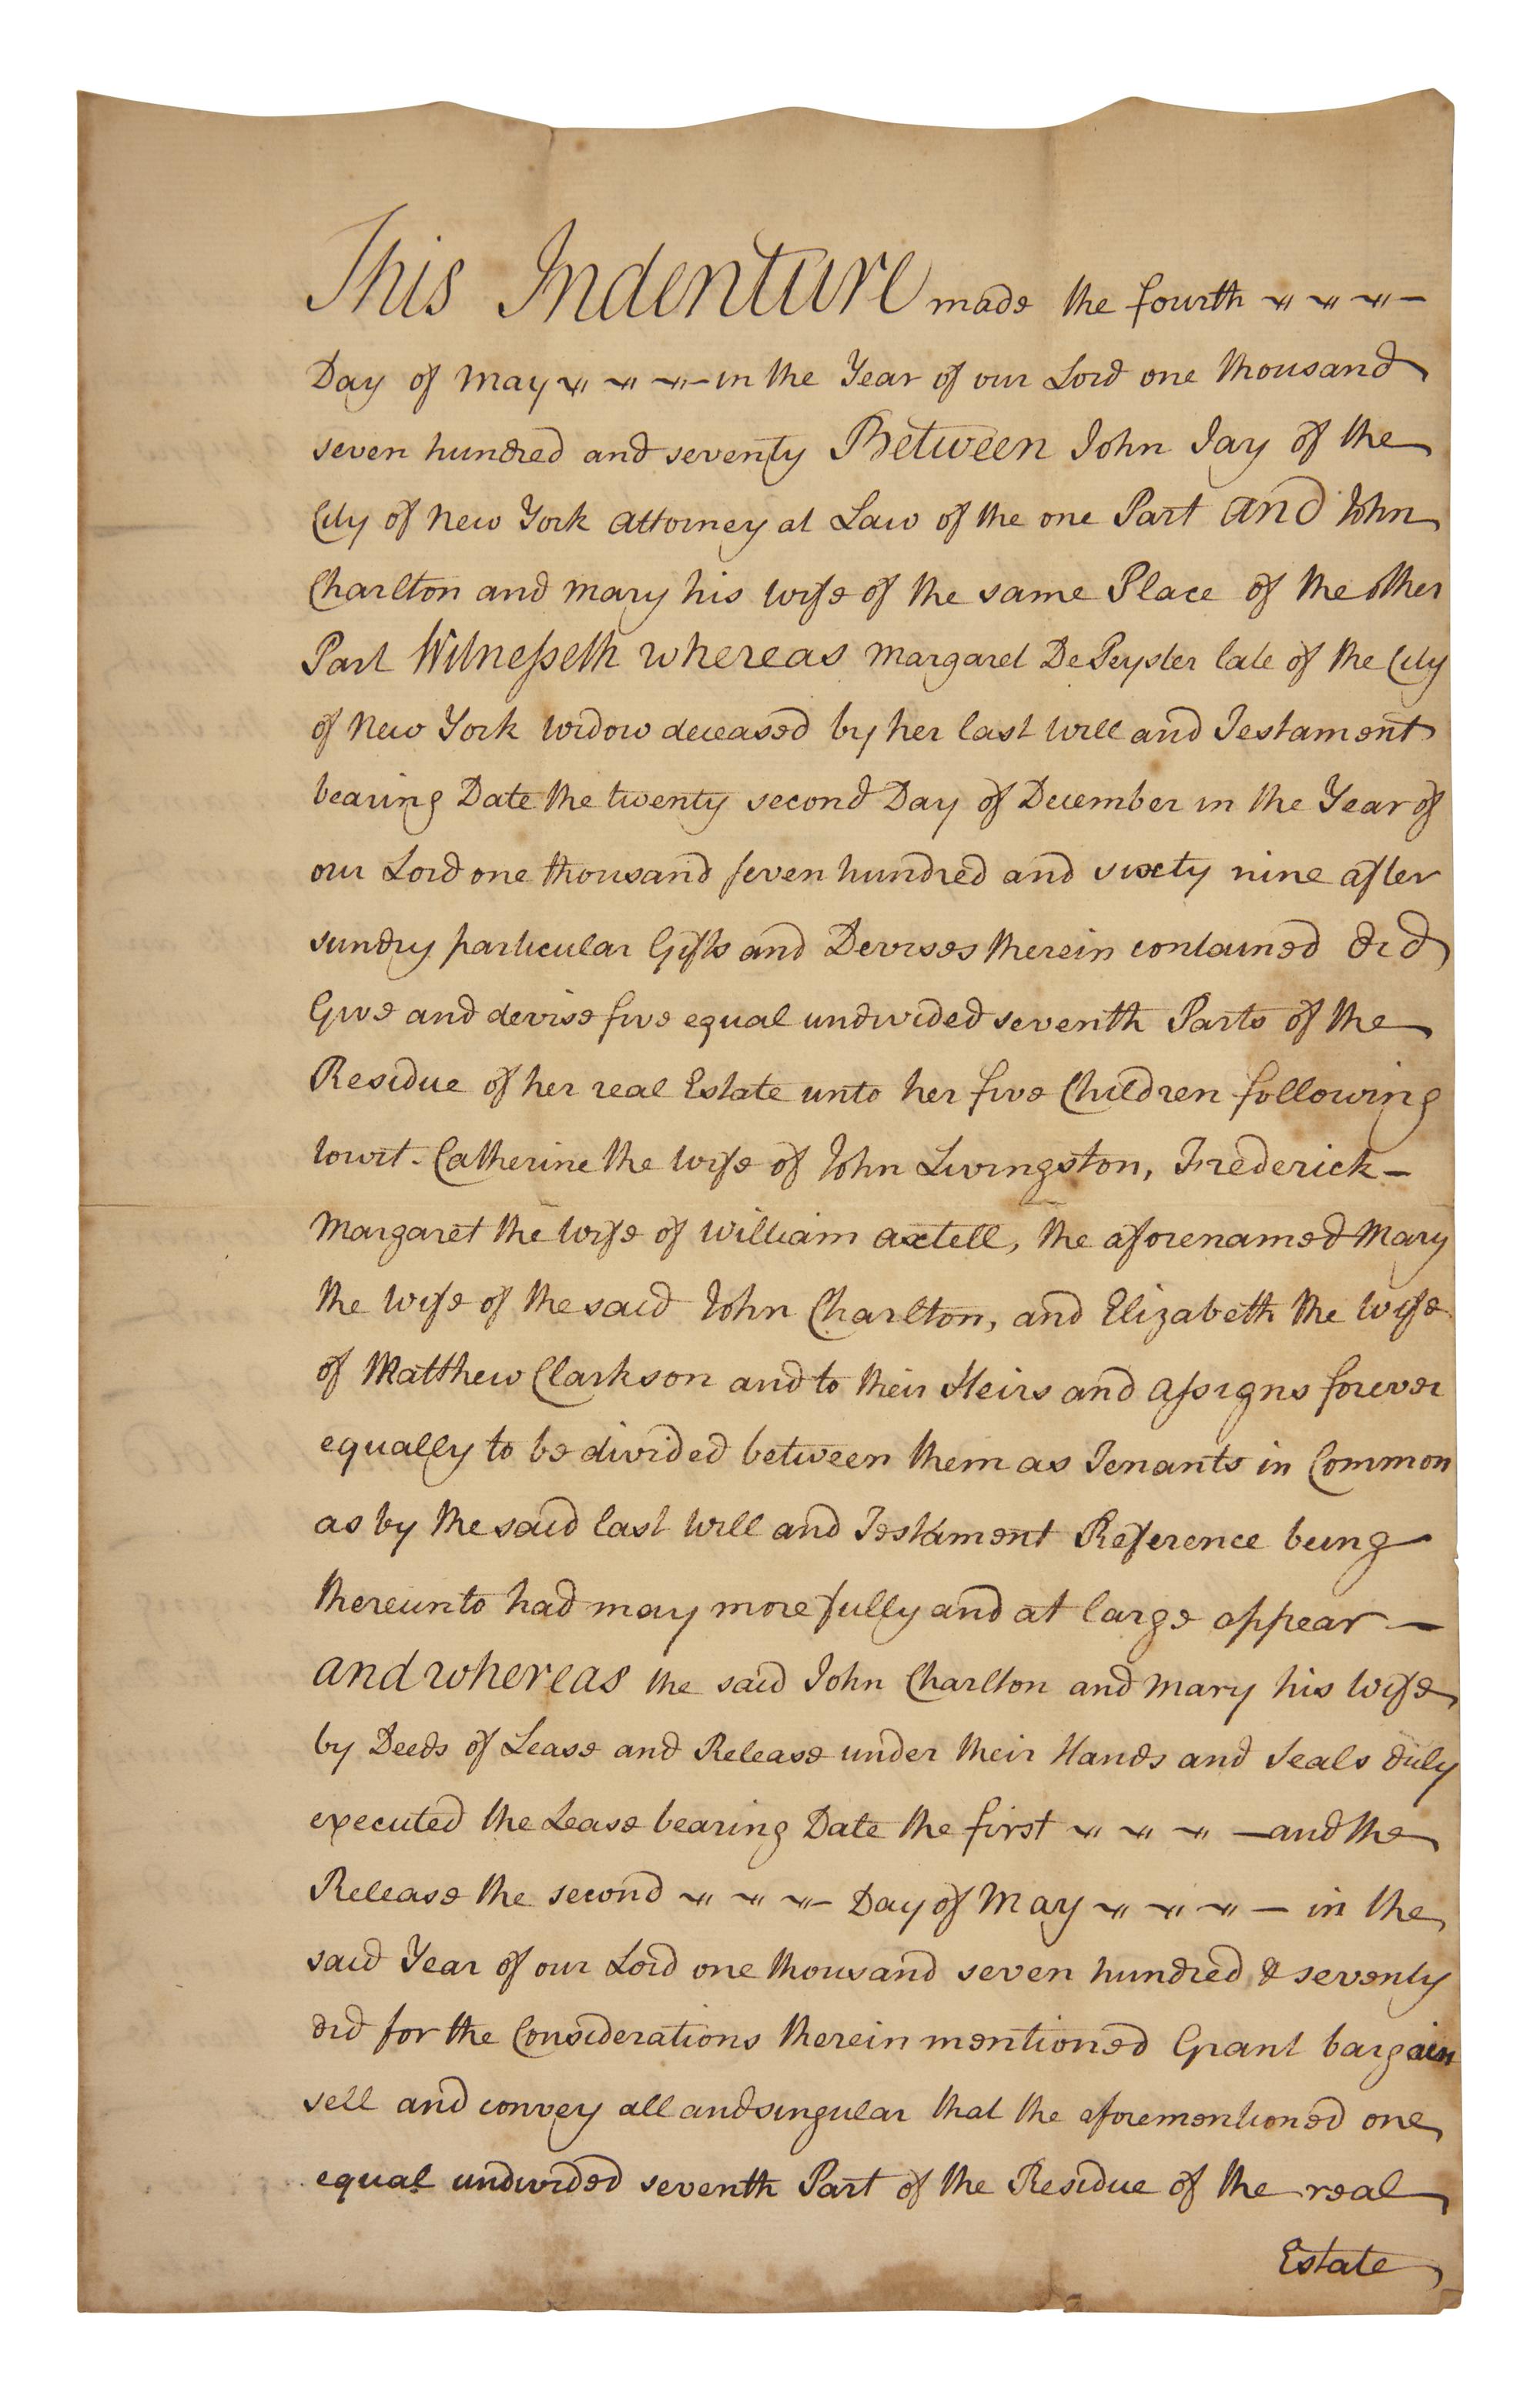 This Indenture made the fourth ~ ~ ~ —
Day of May ~ ~ ~ — in the Year of our Lord one thousand
seven hundred and seventy Between John Jay of the
City of New York Attorney at Law of the one Part And John
Charlton and Mary his Wife of the same Place of the other
Part Witnesseth Whereas Margaret DePeyster late of the City
of New York Widow deceased by her last Will and Testament
bearing Date the twenty second Day of December in the Year of
our Lord one thousand seven hundred and sixty nine after
sundry particular Gifts and Devises therein contained did
Give and devise five equal undivided seventh Parts of the
Residue of her real Estate unto her five Children following
towit. Catherine the Wife of John Livingston, Frederick —
Margaret the Wife of William Axtell, the aforenamed Mary
the Wife of the said John Charlton, and Elizabeth the Wife
of Matthew Clarkson and to their Heirs and Assigns forever
equally to be divided between them as Tenants in Common
as by the said last Will and Testament Reference being
thereunto had may more fully and at large appear —
And whereas the said John Charlton and Mary his Wife
by Deeds of Lease and Release under their Hands and Seals duly
executed the Lease bearing Date the first ~ ~ ~ — and the
Release the second ~ ~ ~ — Day of May ~ ~ ~ — in the
said Year of our Lord one thousand seven hundred & seventy
did for the Considerations therein mentioned Grant bargain
sell and convey all and singular that the aforementioned one
equal undivided seventh Part of the Residue of the real
Estate